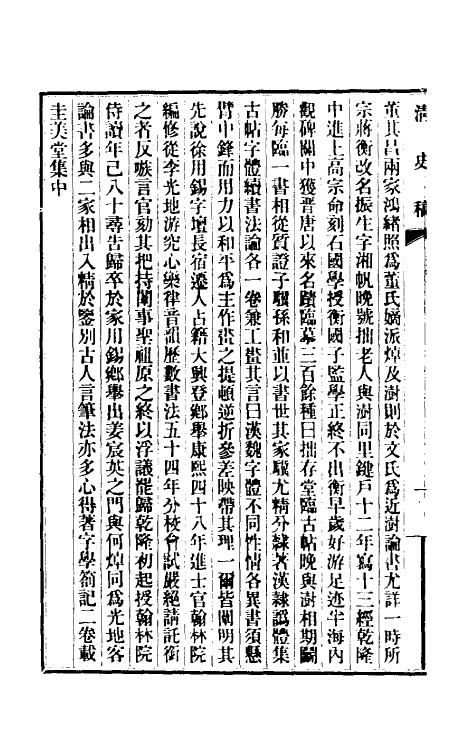 清史稿
董其昌兩家鴻緒照爲董氏嫡派焯及澍則於文氏爲近澍論書尤詳一時所
宗蔣衡改名振生字湘帆晚號拙老人與澍同里鍵戸十二年寫十三經乾隆
中進上高宗命刻石國學授衡國子監學正終不出衡早歲好游足迹半海內
觀碑關中獲晉唐以來名蹟臨摹三百餘種曰拙存堂臨古帖晚與澍相期闢
勝每臨一書相從質證子驥孫和並以書世其家驥尤精分隸著漢隸譌體集
古帖字體續書法論各一卷兼工畫其言曰漢魏字體不同性情各異書須懸
臂中鋒而用力以和平爲主作畫之提頓逆折參差映帶其理一爾皆闡明其
先說徐用錫字壇長宿遷人占籍大興登鄉舉康熙四十八年進士官翰林院
編修從李光地游究心樂律音韻歷數書法五十四年分校會試嚴絕請託銜
之者反嗾言官劾其把持闈事聖祖原之終以浮議罷歸乾隆初起授翰林院
侍讀年已八十尋告歸卒於家用錫鄉舉出姜宸英之門與何焯同爲光地客
論書多與二家相出入精於鑒別古人言筆法亦多心得著字學劄記二卷載
圭美堂集中